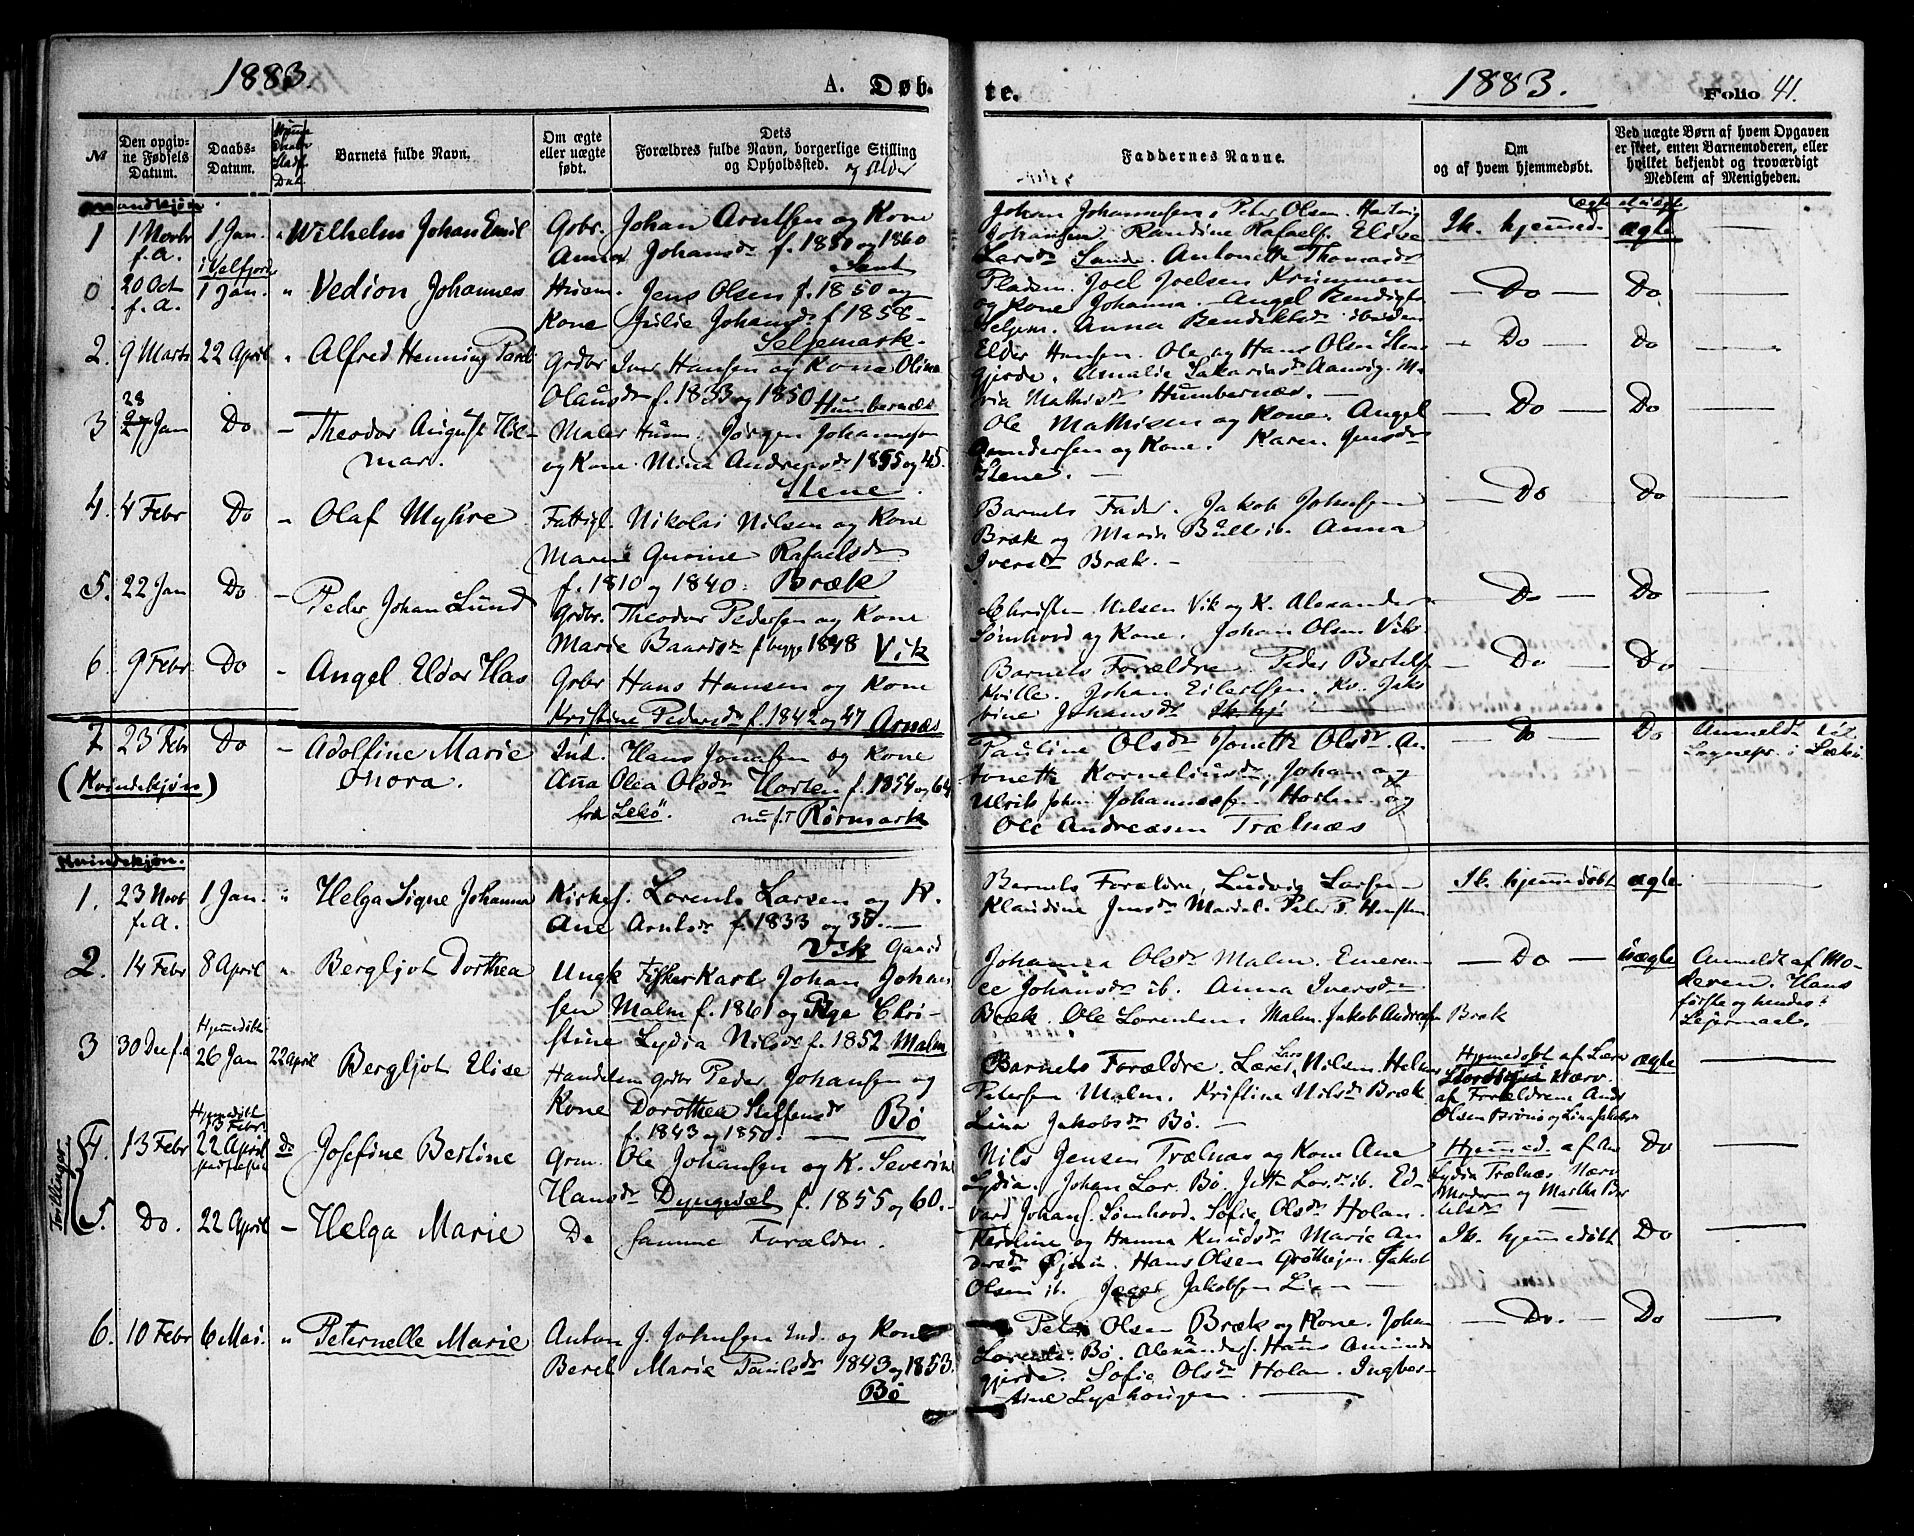 1883
A. Døb-
te.
1883.
Folio 41.
№
Den opgiv-
ne Fødsels
Datum.
Daabs-
Datum.
Barnets fulde Navn.
Om ægte
eller uægte
født.
Dets
Forældres fulde Navn, borgerlige Stilling
og Opholdssted.
og Alder
Faddernes Navne.
Om
og af hvem hjemmedøbt.
Ved uægte Børn af hvem Opgaven
er skeet, enten Barnemoderen, eller
hvilket bekjendt og troværdigt
Medlem af Menigheden.
Mandkjøn.
1 1 Novbr f.A. 1 Jan. " Wilhelm Johan Emil
Gbr. Johan Arntsen og Kone
Anna Johansdr f. 1850 og 1860
Johan Johannesen, Peter Olsen. Hartvig
Johansen Randine Rafaelsd. Elise
Larsdr Sande. Antonette Thomasdr
Ik. hjemmed. ægte
0 20 Oct f.A. i Velfjord 1 Jan. " Vedion Johannes
Husm. Jens Olsen f. 1850 og
Kone Julie Johansdr f 1858-
Seljemark-
Pladsm. Joel Joelsen Krummen
og Kone Johanna. Angel Bendigts
Seljem. Anna Bendiktsdr ibiden
Do Do
2. 9 Marts 22 April " Alfred Henning Parel
Grdbr Iver Hansen og Kone Olina
Olausdr f. 1833 og 1850 Humbernæs
Elder Hansen. Ole og Hans Olsen Stens
gjerde. Amalie Sakariasdr Aanvig. M-
ria Mathisdr Humbernæs.
Do Do
3 28 27 Jan Do - Theodor August Hil-
mar.
Maler Husm. Jørgen Johannesen
og Kone Mina Andreasdr 1855 og 45.
Stene.
Ole Mathisen og Kone. Angel
Andersen og Kone. Karen Jensdr
Stene.
Do Do
4. 4 Febr Do " Olaf Myhre
Fattigl. Nikolai Nilsen og Kone
Marie Gurine Rafaelsdr
f. 1810 og 1840. Bræk
Barnets Fader. Jakob Johnsen
Bræk og Maria Bull ib. Anna
Iversdr Bræk. -
Do Do
5. 22 Jan Do - Peder Johan Lund
Grdbr. Theodor Pedersen og Kone
Marie Baardsdr f begge 1848 Vik
Christen Nilsen Vik og K. Alexander
Sømhovd og Kone. Johan Olsen Vik.
Do Do
6. 9 Febr Do - Angel Eldor Has
Grbr Hans Hansen og Kone
Kristine Pedersdr f. 1842 og 47 Arnæs
Barnets Forældre Peder Bertelsen
Kville. Johan Eilertsen. Kv. Jak
bine Johansdr
Do Do
7 23 Febr Do - Adolfine Marie
Onora.
(Kvindekjøn)
Ind. Hans Jonassen og Kone
Ana Olea Olsdr Horsen f. 1854 og 64
fra Lekø. nu f.T Rørmark
Pauline Olsdr Jonette Olsdr. An-
tonette Korneliusdr, Johan og
Ulrik Johan Johannesen Horsen og
Ole Andreasen Trælnæs
Do Do
Anmeldt til
Sognepr. i Lekø.
Kvindekjøn.
1. 23 Novb f.A. 1 Jan. " Helga Signe Johanna
Kirkes. Lorents Larsen og K.
Ane Arntsdr f. 1833 og 35.
Vik Gaard
Barnets Forældre, Ludvig Larsen
Klaudine Jensdr Mardal. Peter P. Horsten
Ik. hjemmedøbt ægte
2. 14 Febr 8 April " Bergljot Dorthea
Ungk Fisker Karl Johan Johan
sen Malm f. 1861 og Pige Chri-
stine Lydia Nilsdr f. 1852 Malm
Johanna Olsdr Malm. Emeren-
ce Johansdr ib. Anna Iversdr
Bræk. Ole Lorentsen Malm. Jakob Andreasen Bræk
Do uægte
Anmeldt af Mo-
deren. Hans
første og hendes
Lejermaal.
3 30 Dec f.A Hjemmedøbt 26 Jan 22 April Bergljot Elise
Handelsm Grbr Peder Johansen og
Kone Dorothea Steffensdr
f. 1843 og 1850. - Bø
Barnets Forældre. Lærer Lars Nilsen. Helene
Petersen Malm. Kristine Nilsdr Bræk
Lina Jakobsdr Bø. -
Hjemmedøbt af Lærer
Nærv.
af Forældrene Ands
Olsen Brønø og Lina Jakobsdr
ægte
Tvillinger
4. 13 Febr Hjemmedøbt 13 Febr. 22 April do Josefine Berline
Grm. Ole Johansen og K. Severine
Hansdr Dyngesæt f. 1855 og 60.-
Nils Jensen Trælnæs og Kone Ane
Lydia. Johan Lor. Bø. Jette Lor.dr ib. Ed-
vard Johans. Sømhovd. Sofie Olsdr Holan.
Hjemmed. af An
Lydia Trælnæs Nærv
Moderen og Marthe Ber
telsdr
Do
5. Do. 22 April - Helga Marie
Do samme Forældre.
Karoline og Hanna Knudsdr Marie An
dersdr Hans Olsen
Olsen ib. Jakobsen
Ik. hjemmedøbt Do
6. 10 Febr 6 Mai. " Peternelle Marie
Anton J. Johnsen Ind. og Kone
Beret Marie Paulsdr 1843 og 1853.
Bø
Peter Olsen Bræk og Kone. Johan
Lorents. Bø. Alexanders. Hans Amunds
gjerde. Sofie Olsdr Holan. Ingber-
tine Lyshougen
Do. Do